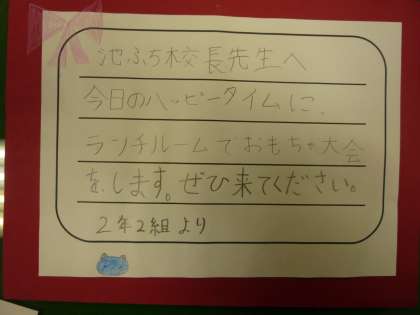 池ふち校長先生へ
今日のハッピータイムに、
ランチルームでおもちゃ大会
をします。ぜひ来てください。
2年2組より